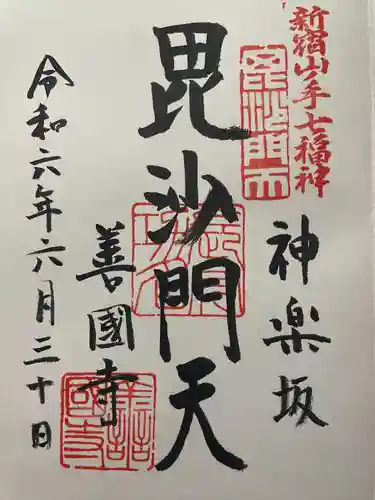 新宿山ノ手七福神
毘沙門天
神楽坂
毘沙門天
善國寺
令和六年六月三十日